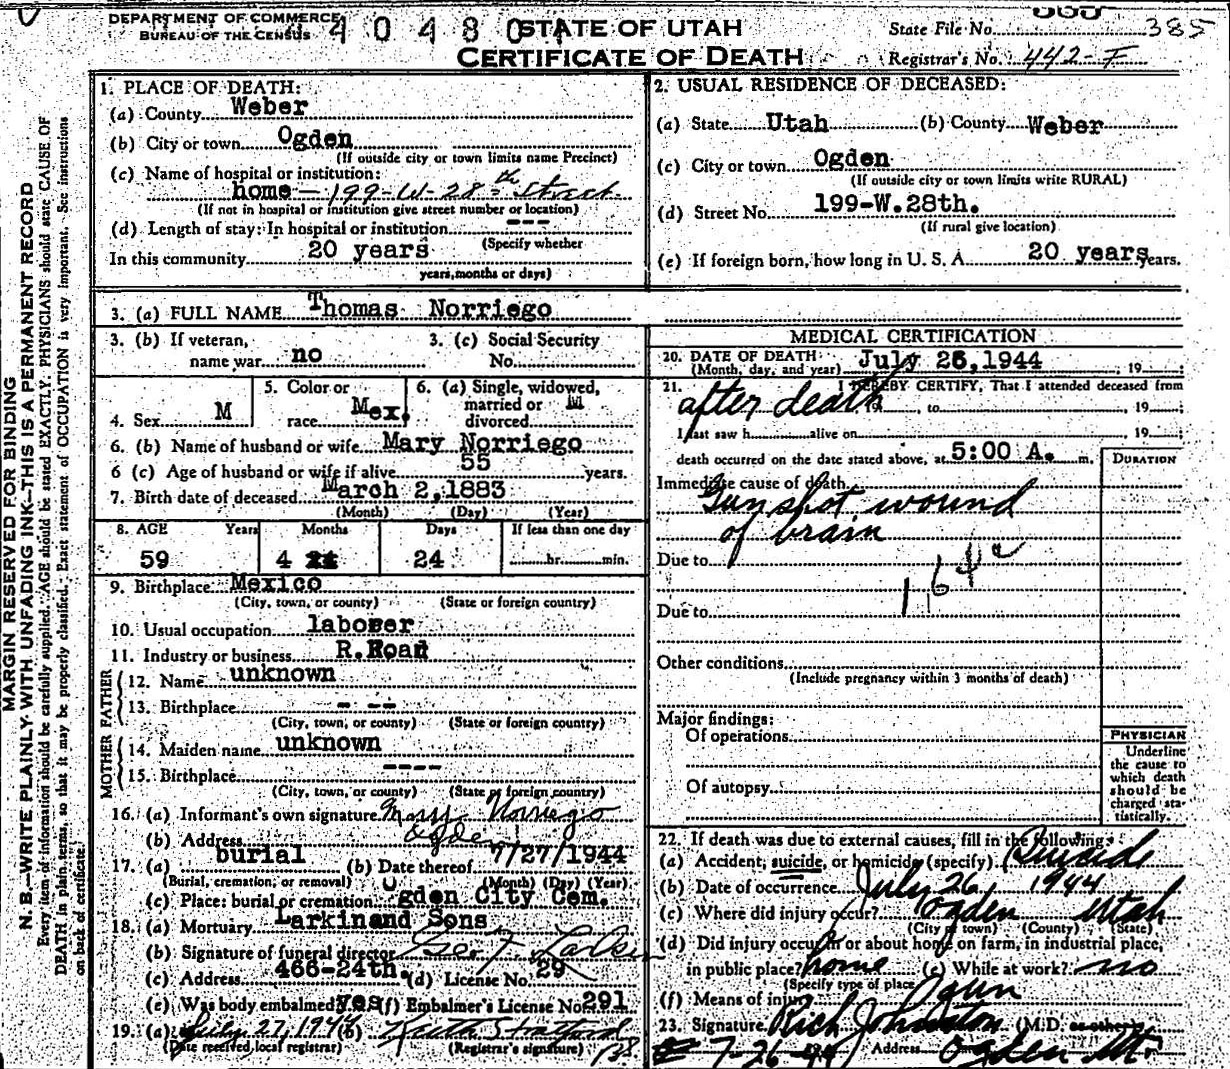 DEPARTMENT OF COMMERCE
BUREAU OF THE CENSUS
STATE OF UTAH
CERTIFICATE OF DEATH
State File No. 385
Registrar's No. 442-F
MARGIN RESERVED FOR BINDING
N. B.—WRITE PLAINLY WITH UNFADING INK—THIS IS A PERMANENT RECORD
Every item of information should be carefully supplied. AGE should be stated EXACTLY. PHYSICIANS should state CAUSE OF
DEATH in plain terms, so that it may be properly classified. Exact statement of OCCUPATION is very important. See instructions
on back of certificate.
1. PLACE OF DEATH:
(a) County Weber
(b) City or town Ogden
(If outside city or town limits name Precinct)
(c) Name of hospital or institution:
home—199-W-28th Street
(If not in hospital or institution give street number or location)
(d) Length of stay: In hospital or institution -- --
(Specify whether
In this community 20 years
years, months or days)
2. USUAL RESIDENCE OF DECEASED:
(a) State Utah (b) County Weber
(c) City or town Ogden
(If outside city or town limits write RURAL)
(d) Street No. 199-W.28th.
(If rural give location)
(e) If foreign born, how long in U. S. A. 20 years years.
3. (a) FULL NAME Thomas Norriego
3. (b) If veteran,
name war no
3. (c) Social Security
No.
4. Sex M
5. Color or
race Mex.
6. (a) Single, widowed,
married or M
divorced
6. (b) Name of husband or wife Mary Norriego
6 (c) Age of husband or wife if alive 55 years.
7. Birth date of deceased March 2,1883
(Month) (Day) (Year)
8. AGE Years Months Days If less than one day
59 4 24 hr. min.
9. Birthplace Mexico
(City, town, or county) (State or foreign country)
10. Usual occupation laborer
11. Industry or business R.Road
FATHER
12. Name unknown
13. Birthplace - --
(City, town, or county) (State or foreign country)
MOTHER
14. Maiden name unknown
15. Birthplace ----
(City, town, or county) (State or foreign country)
16. (a) Informant's own signature Mary Norriego
(b) Address Ogden
17. (a) burial (b) Date thereof 7/27/1944
(Burial, cremation, or removal) (Month) (Day) (Year)
(c) Place: burial or cremation Ogden City Cem.
18. (a) Mortuary Larkin and Sons
(b) Signature of funeral director Larkin
(c) Address 466-24th. (d) License No. 29
(e) Was body embalmed yes (f) Embalmer's License No. 291
19. (a) July 27, 1944 (b) Keith Stratford
(Date received local registrar) (Registrar's signature)
MEDICAL CERTIFICATION
20. DATE OF DEATH: July 26,1944
(Month, day, and year) , 19 ;
21. I HEREBY CERTIFY, That I attended deceased from
after death 19 , to , 19 ;
I last saw h alive on , 19 ;
death occurred on the date stated above, at 5:00 A. m.
DURATION
Immediate cause of death
Gun shot wound
of brain
Due to
164c
Due to
Other conditions
(Include pregnancy within 3 months of death)
Major findings:
Of operations
Of autopsy
PHYSICIAN
Underline
the cause to
which death
should be
charged sta-
tistically.
22. If death was due to external causes, fill in the following:
(a) Accident, suicide, or homicide (specify) Suicide
(b) Date of occurrence July 26, 1944
(c) Where did injury occur? Ogden Utah
(City or town) (County) (State)
(d) Did injury occur in or about home on farm, in industrial place,
in public place? home (e) While at work? no
(Specify type of place)
(f) Means of injury gun
23. Signature Rich Johnston (M.D. or other)
7-26-44 Address Ogden Ut.